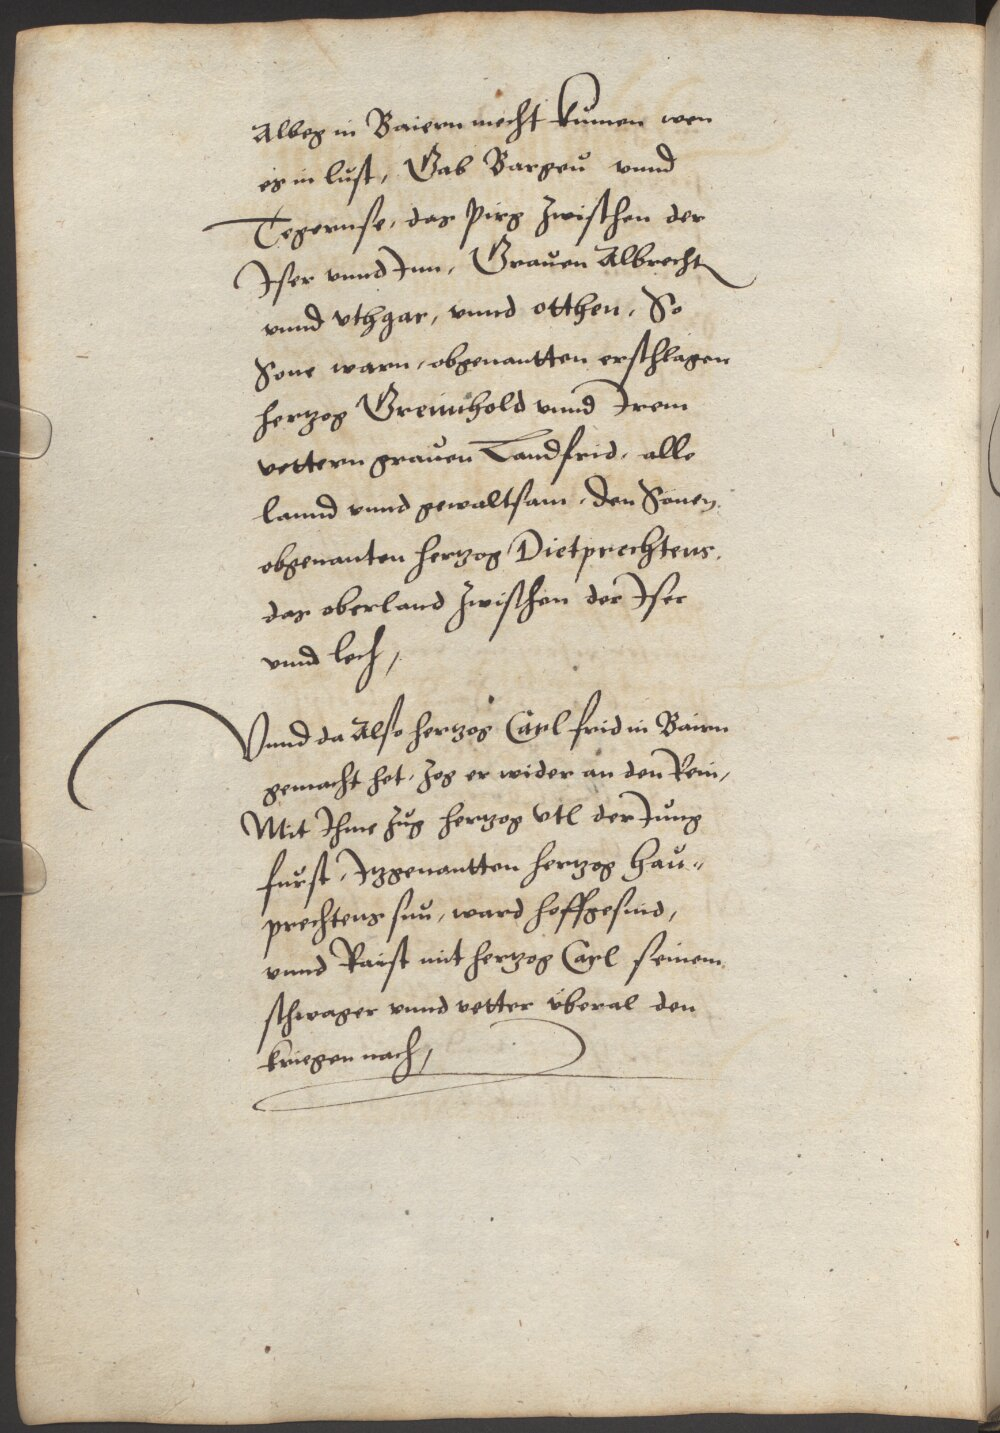 Albeg in Baiern mecht kumen wen
es in lust, Gab Bargeu vnnd
Tegernse, das Pirg zwischen der
Iser vnnd Inn, Grauen Albrecht
vnnd Vthgar, vnnd otthen, So
Sone warn, obgenantten erschlagen
hertzog Greimhold vnnd Irem
vettern grauen Landfrid, alle
lannd vnnd gewaltsam, den Sönen
obgenanten hertzog Dietprechtens,
das oberland zwischen der Iser
vnnd lech,
Vnnd da Also hertzog Carl frid in Bairn
gemacht het, zog er wider an den Rein,
Mit Ihme zug hertzog Vtl der Jung
furst, Itzgenantten hertzog Hau-
prechtens sun, ward hoffgesind,
vnnd Raist mit hertzog Carl seinem
schwager vnnd vetter vberal den
kriegen nach,